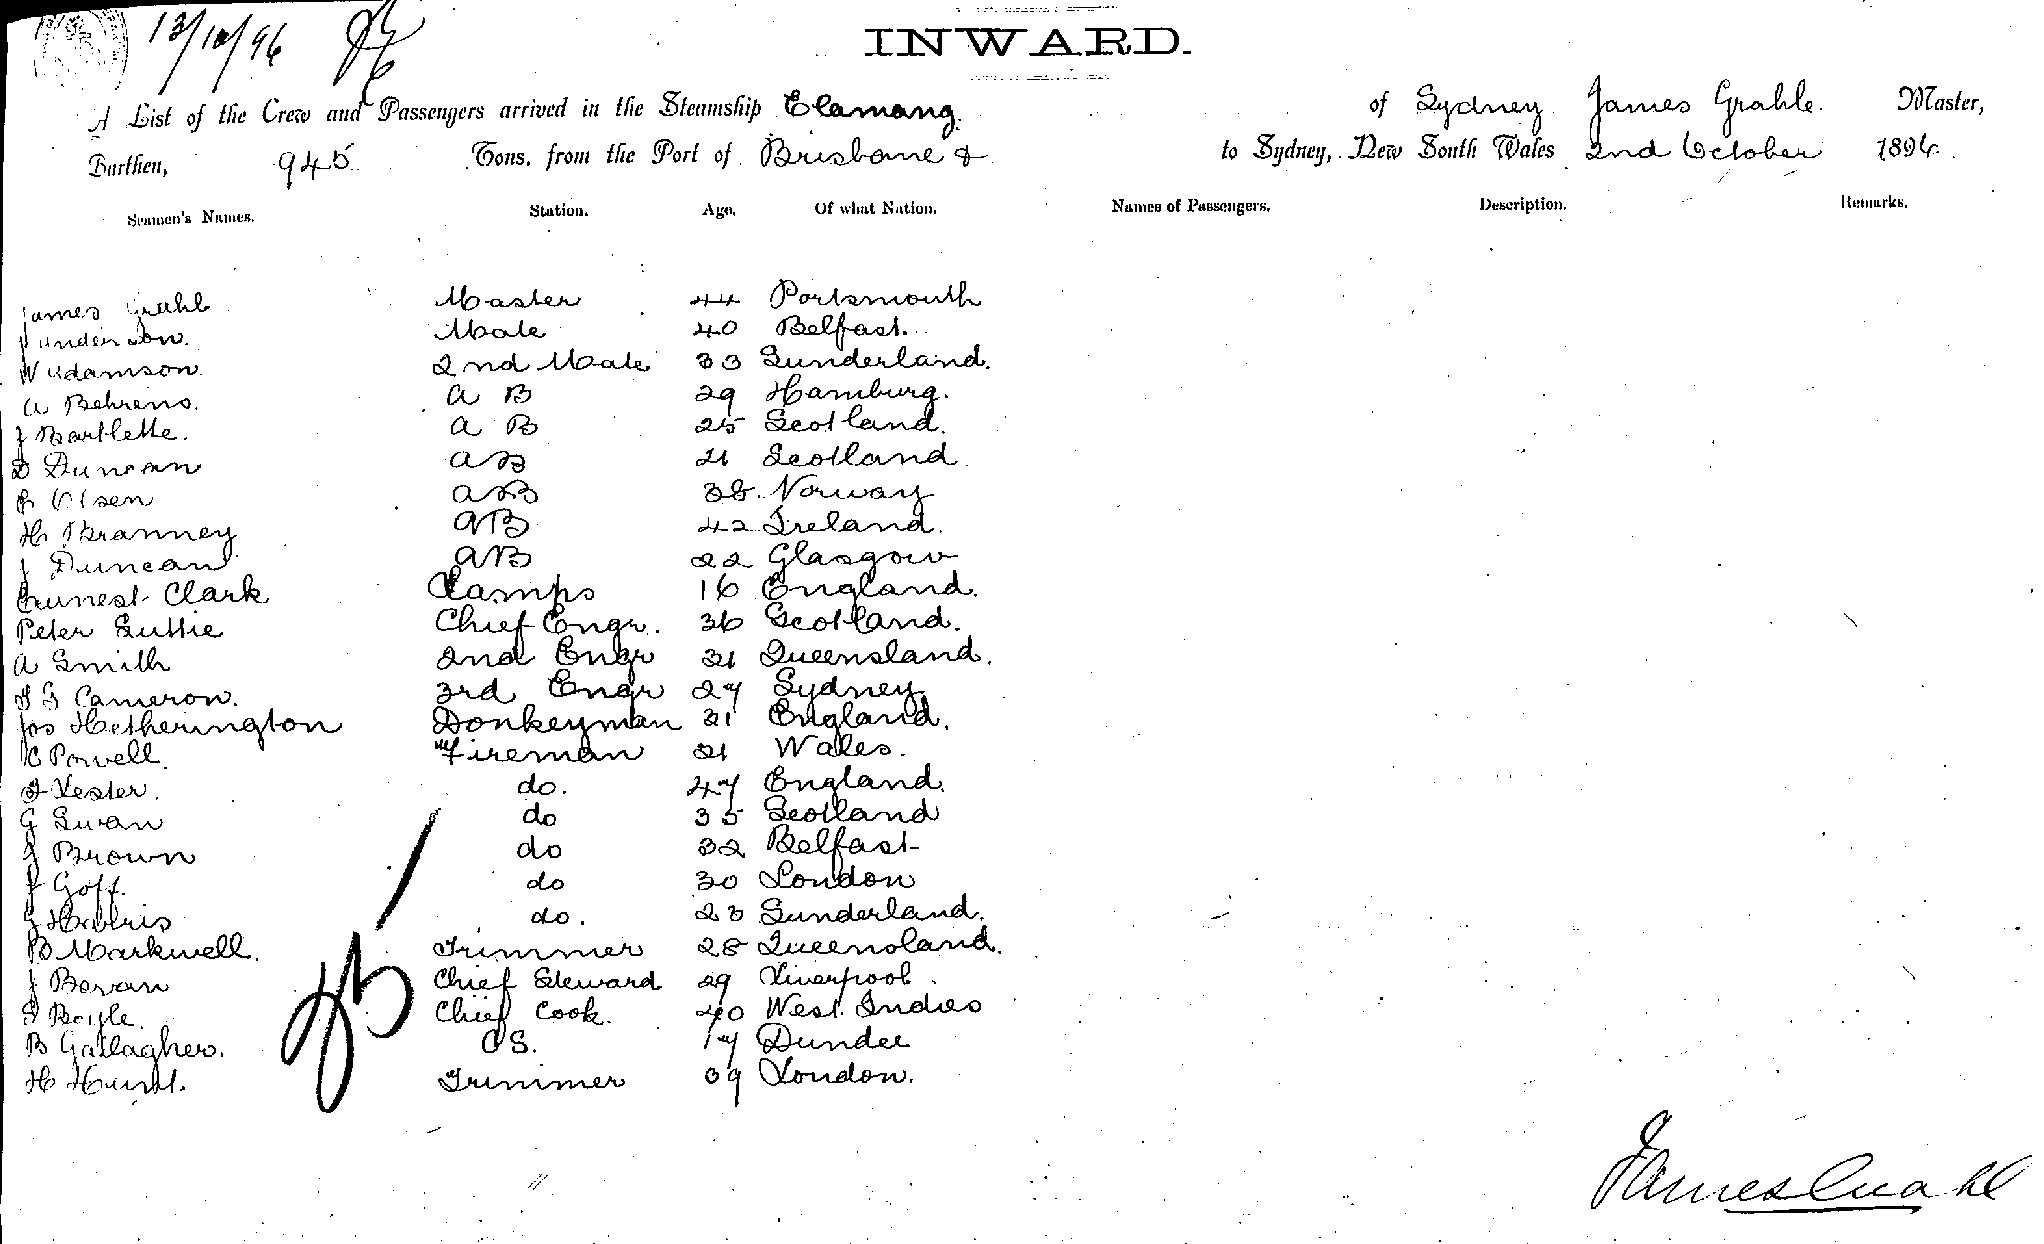 13/10/96
INWARD.
A List of the Crew and Passengers arrived in the Steamship Elamang. of Sydney James Grahle. Master,
Burthen, 945 Tons, from the Port of Brisbane & to Sydney, New South Wales 2nd October 1896.
Seamen's Names. Station. Age. Of what Nation. Names of Passengers. Description. Remarks.
James Grahl Master 44 Portsmouth
Mate 40 Belfast.
W Adamson 2nd Mate 33 Sunderland.
A Behrens. A B 29 Hamburg.
J Bartlette. A B 25 Scotland.
D Duncan AB 21 Scotland
Olsen AB 38. Norway
H Branney AB 42 Ireland.
J Duncan AB 22 Glasgow
Ernest Clark Lamps 16 England.
Peter Suttie Chief Engr. 36 Scotland.
A Smith 2nd Engr 31 Queensland.
Cameron. 3rd Engr 27 Sydney
Jos Hetherington Donkeyman 31 England.
Powell. Fireman 21 Wales.
Lester. do. 47 England.
G Swan do 35 Scotland
J Brown do 32 Belfast
J Goff. do 30 London
Harris do. 23 Sunderland.
B Markwell. Trimmer 28 Queensland.
J Bevan Chief Steward 29 Liverpool.
Boyle. Chief Cook. 40 West Indies
B Gallagher. OS. 17 Dundee
H Hurst. Trimmer 39 London.
25
James Grahl